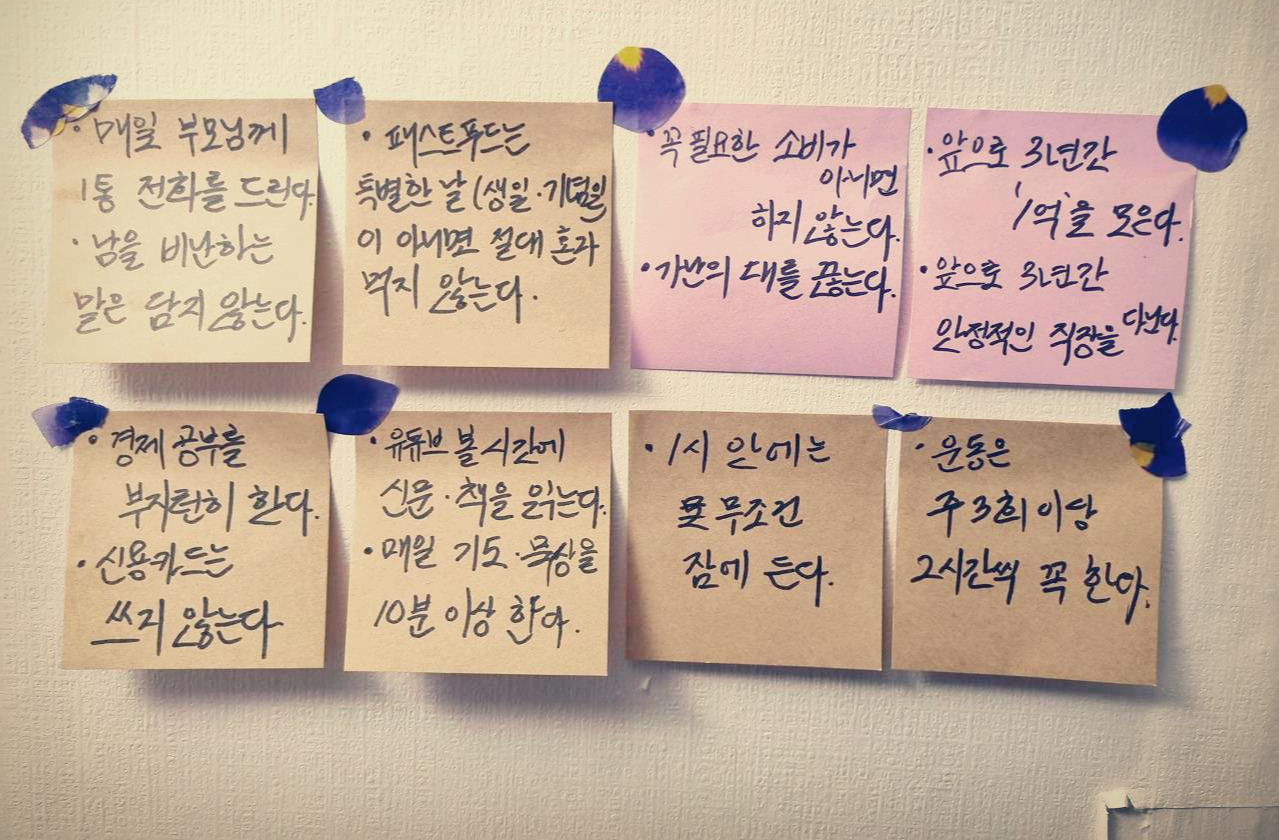 • 매일 부모님께
1통 전화를 드린다.
• 남을 비난하는
말은 담지 않는다.
• 패스트푸드는
특별한 날(생일·기념일)
이 아니면 절대 혼자
먹지 않는다.
• 꼭 필요한 소비가
아니면
하지 않는다.
• 가난의 대를 끊는다.
• 앞으로 3년간
'1억'을 모은다.
• 앞으로 3년간
안정적인 직장을 다닌다.
• 경제 공부를
부지런히 한다.
• 신용카드는
쓰지 않는다
• 유튜브 볼 시간에
신문·책을 읽는다.
• 매일 기도·묵상을
10분 이상 한다.
• 1시 안에는
무조건
잠에 든다.
• 운동은
주 3회 이상
2시간씩 꼭 한다.